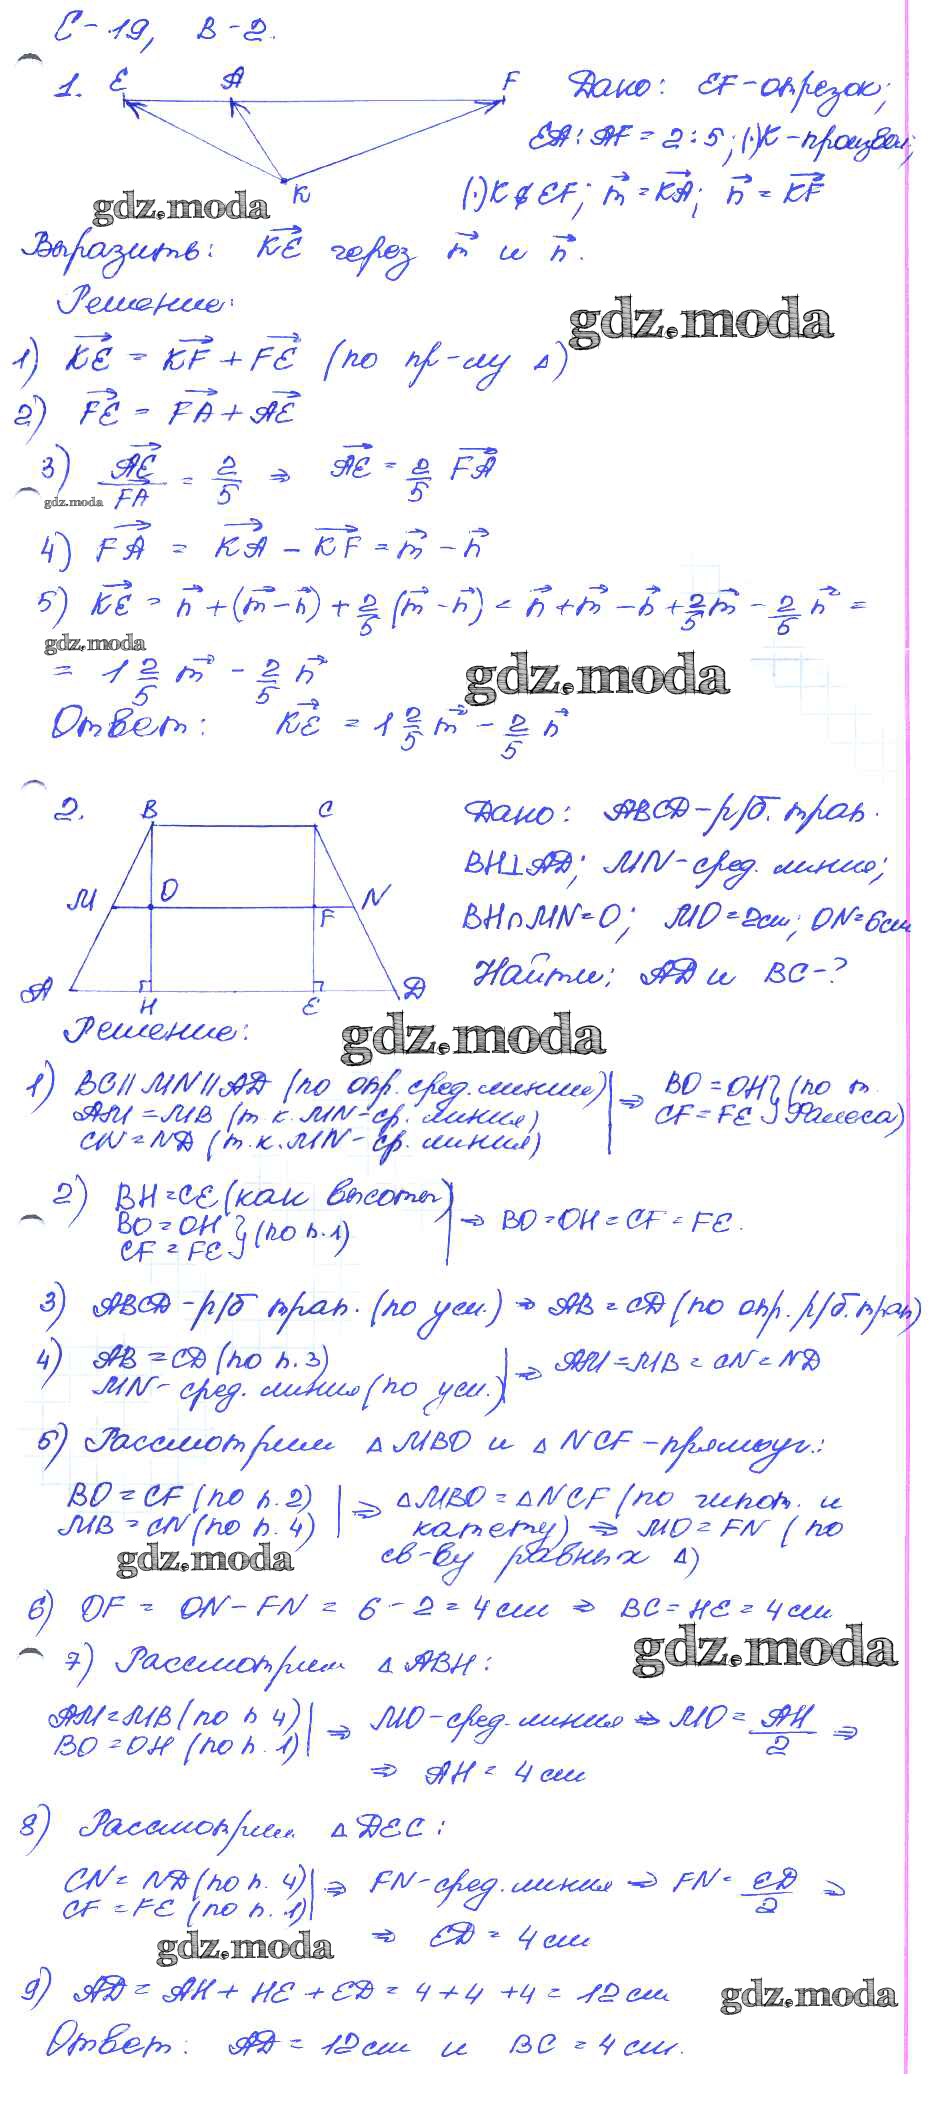 С-19, В-2.
1. E A F K
Дано: EF-отрезок;
EA:AF=2:5; (·)K-произвол;
(·)K∉EF; m⃗=KA⃗; n⃗=KF⃗
gdz.moda
Выразить: KE⃗ через m⃗ и n⃗.
Решение:
gdz.moda
1) KE⃗ = KF⃗ + FE⃗ (по пр-лу Δ)
2) FE⃗ = FA⃗ + AE⃗
3) AE⃗/FA⃗ = 2/5 ⇒ AE⃗ = 2/5 FA⃗
gdz.moda
4) FA⃗ = KA⃗ - KF⃗ = m⃗ - n⃗
5) KE⃗ = n⃗ + (m⃗ - n⃗) + 2/5 (m⃗ - n⃗) = n⃗ + m⃗ - n⃗ + 2/5 m⃗ - 2/5 n⃗ =
gdz.moda
= 1 2/5 m⃗ - 2/5 n⃗
gdz.moda
Ответ: KE⃗ = 1 2/5 m⃗ - 2/5 n⃗
2. B C M O F N A H E D
Дано: ABCD-р/б. трап.
BH⊥AD; MN-сред. линия;
BH∩MN=O; MO=2см; ON=6см
Найти: AD и BC-?
Решение:
gdz.moda
1) BC∥MN∥AD (по опр. сред. линии) | ⇒ BO=OH } (по т.
AM=MB (т.к. MN-ср. линия) | CF=FE } Фалеса)
CN=ND (т.к. MN-ср. линия)
2) BH=CE (как высоты)
BO=OH } (по п.1) | ⇒ BO=OH=CF=FE.
CF=FE
3) ABCD-р/б трап. (по усл.) ⇒ AB=CD (по опр. р/б. трап)
4) AB=CD (по п.3) | ⇒ AM=MB=CN=ND
MN-сред. линия (по усл.)
5) Рассмотрим ΔMBO и ΔNCF-прямоуг.:
BO=CF (по п.2) | ⇒ ΔMBO=ΔNCF (по гипот. и
MB=CN (по п.4) | катету) ⇒ MO=FN (по
gdz.moda св-ву равных Δ)
6) OF = ON-FN = 6-2 = 4см ⇒ BC=HE=4см
gdz.moda
7) Рассмотрим ΔABH:
AM=MB (по п 4) | ⇒ MO-сред. линия ⇒ MO = AH/2 ⇒
BO=OH (по п.1)
⇒ AH = 4см
8) Рассмотрим ΔDEC:
CN=ND (по п.4) | ⇒ FN-сред. линия ⇒ FN = ED/2 ⇒
CF=FE (по п.1)
gdz.moda ⇒ ED = 4см
9) AD = AH + HE + ED = 4+4+4 = 12см
gdz.moda
Ответ: AD = 12см и BC = 4см.